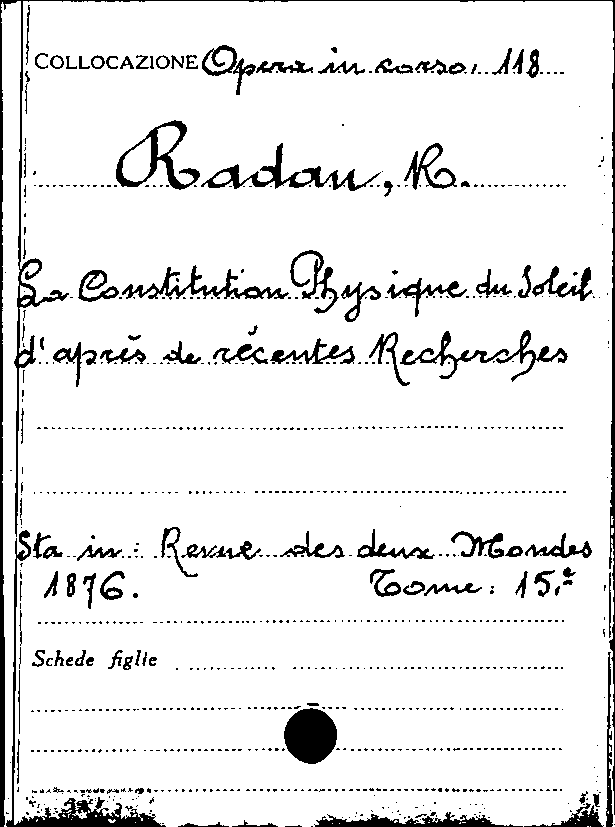 COLLOCAZIONE Opera in corso. 118
Radau, R.
La Constitution Physique du Soleil
d'après de récentes Recherches
Sta in: Revue des deux Mondes
1876. Tome: 15.e
Schede figlie